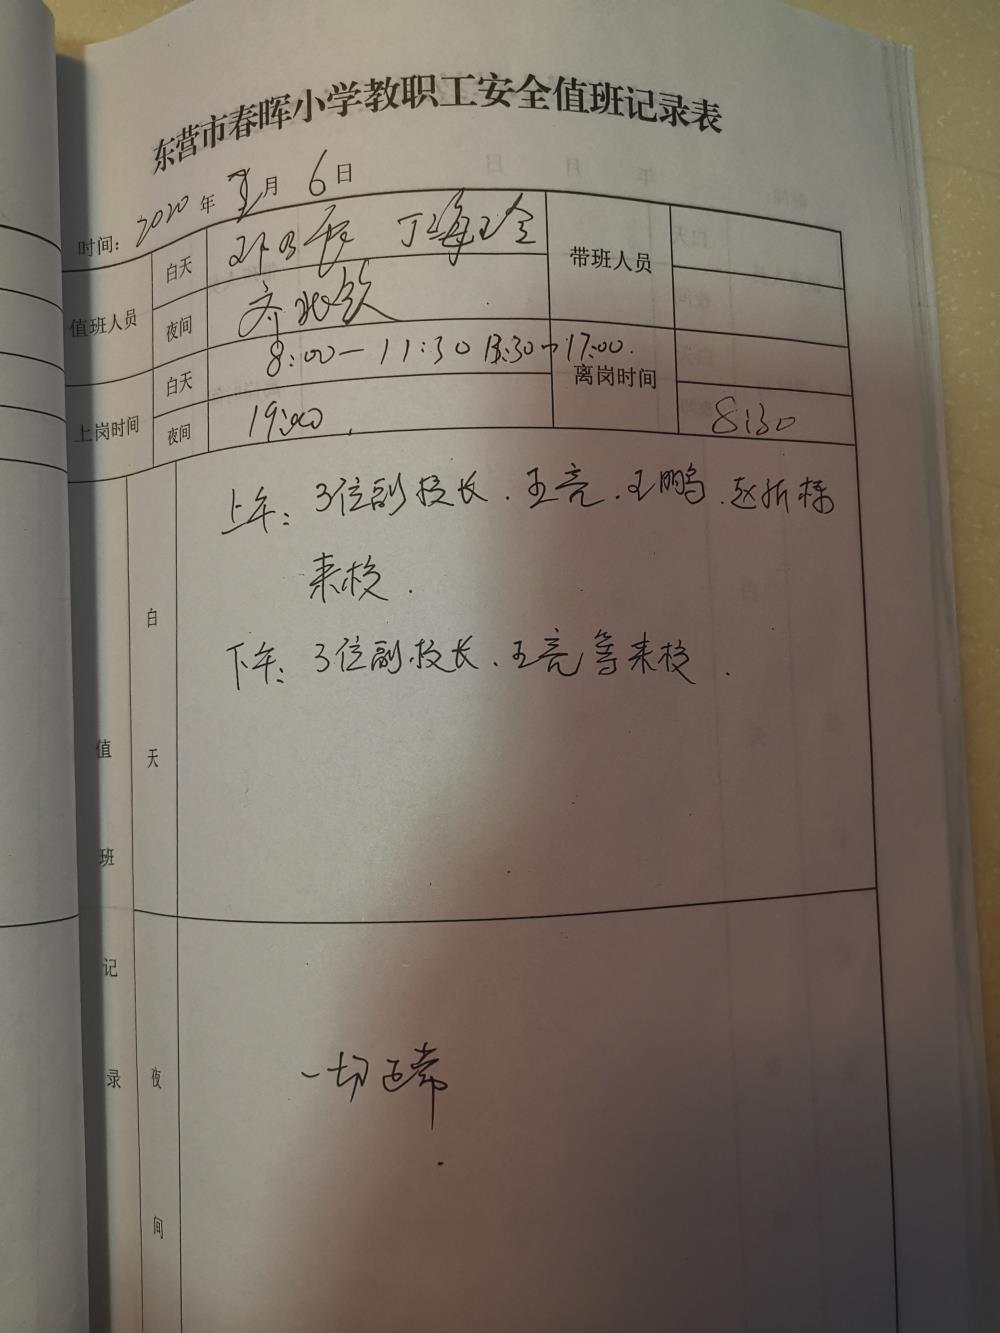 东营市春晖小学教职工安全值班记录表
时间: 2020 年 月 6 日
值班人员 白天 丁海玉 带班人员
夜间 齐
上岗时间 白天 8:00—11:30 13:30—17:00. 离岗时间
夜间 19:00. 8:30
值班记录
白天
上午: 3位副校长.王亮.王鹏.赵
来校.
下午: 3位副校长.王亮等来校.
夜间
一切正常.